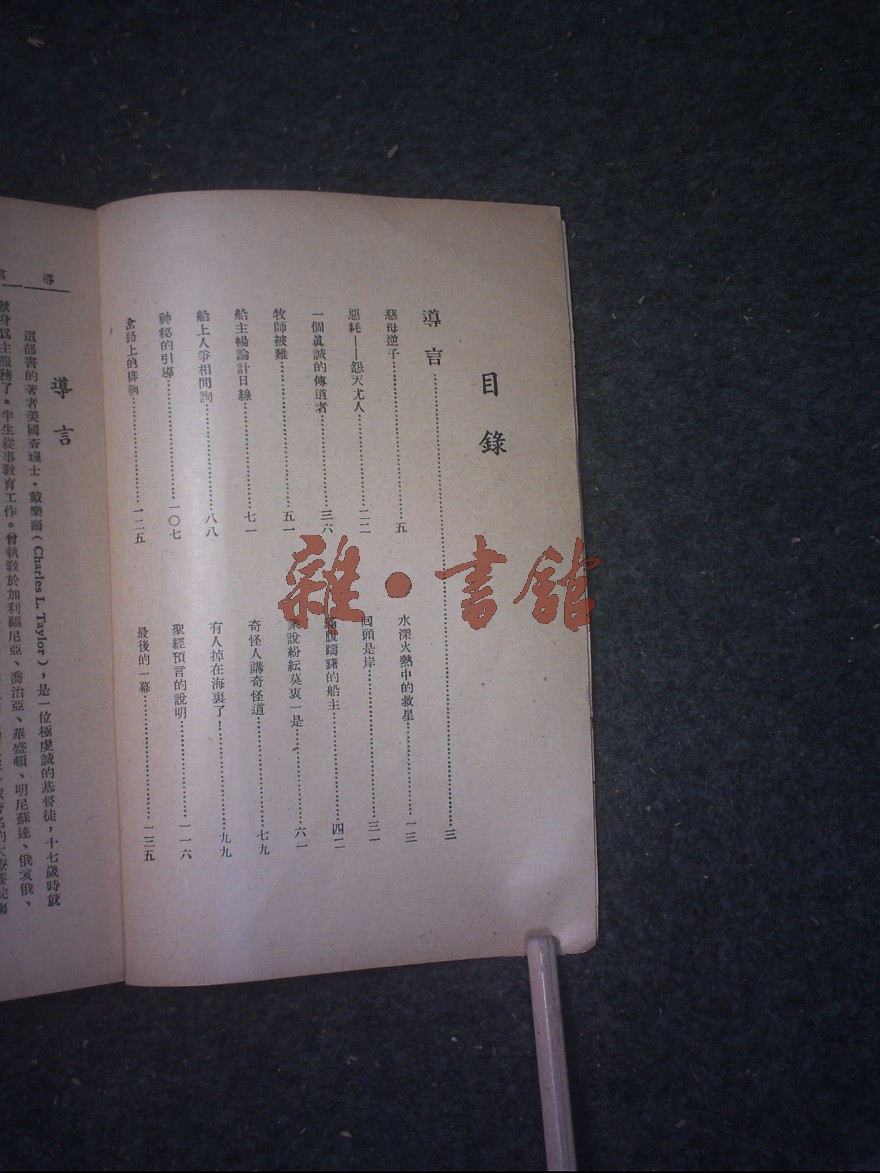 目錄
導言……三
慈母逆子……五
水深火熱中的救星……一三
惡耗——怨天尤人……二二
回頭是岸……三一
一個眞誠的傳道者……三六
躊躇的船主……四二
牧師被難……五一
衆說紛紜莫衷一是……六一
船主暢論計日線……七一
奇怪人講奇怪道……七九
船上人爭相問詢……八八
有人掉在海裏了！……九九
神秘的引導……一〇七
聖經預言的說明……一一六
路上的徘徊……一二五
最後的一幕……一三五
雜·書館
導
導言
這部書的著者美國查理士·戴樂爾（Charles L. Taylor），是一位極虔誠的基督徒，十七歲時就
獻身爲主服務了。半生從事教育工作。曾執教於加利福尼亞、喬治亞、華盛頓、明尼蘇達、俄亥俄、